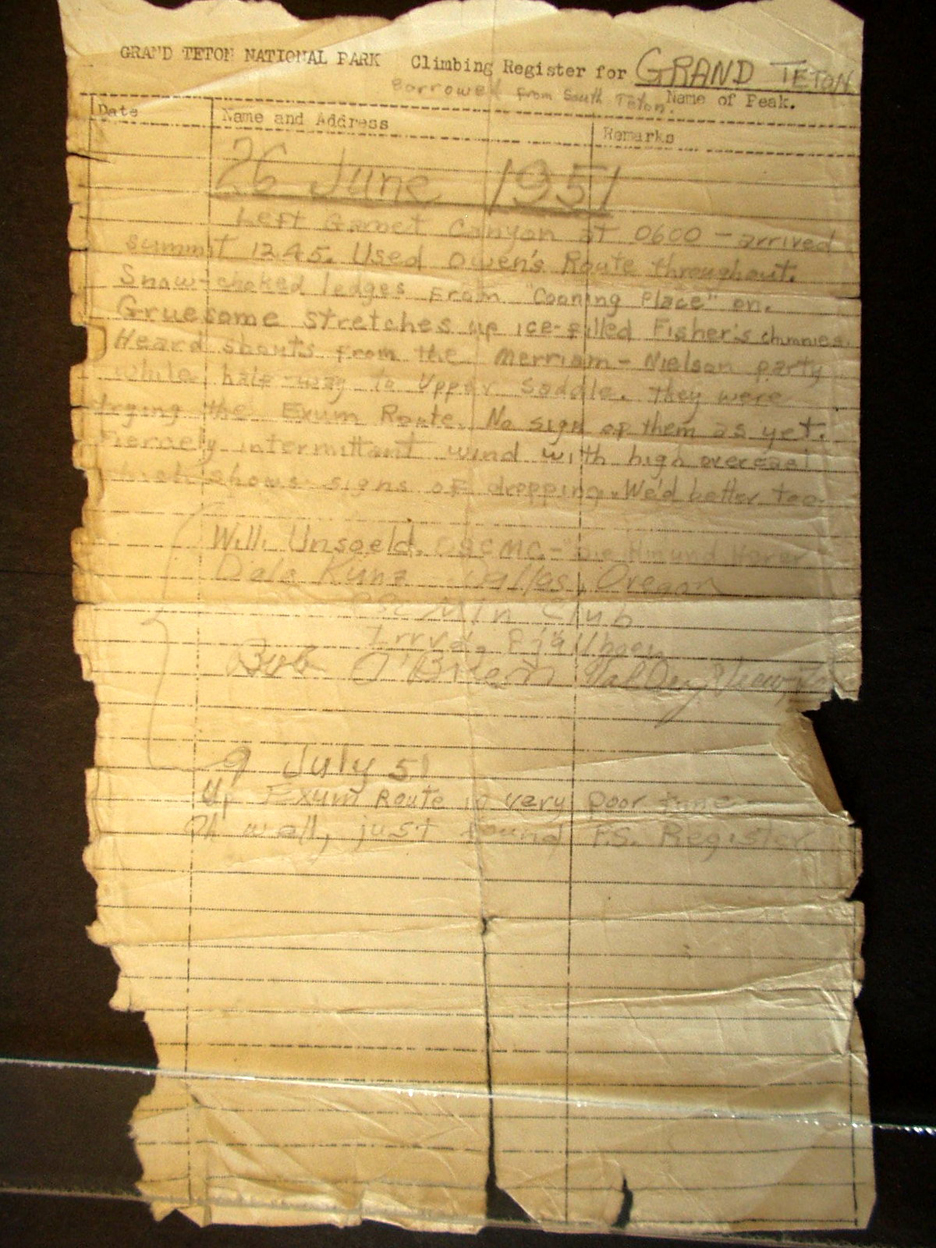 GRAND TETON NATIONAL PARK Climbing Register for GRAND TETON
Borrowed from South Teton. Name of Peak.
Date Name and Address Remarks
26 June 1951
Left Garnet Canyon at 0600 - arrived
summit 1245. Used Owen's Route throughout.
Snow-choked ledges from "Cooning Place" on.
Gruesome stretches up ice-filled Fisher's chimnies.
Heard shouts from the Merriam - Nielson party
while half-way to Upper Saddle. They were
trying the Exum Route. No sign of them as yet.
Fiercely intermittant wind with high overcast
which shows signs of dropping. We'd better too.
Willi Unsoeld, OSCMC -
Dale Kunz Dallas, Oregon
Mtn Club
Bob O'Brien Valley View,
9 July 51
Up Exum Route in very poor time
Oh well, just found P.S. Register